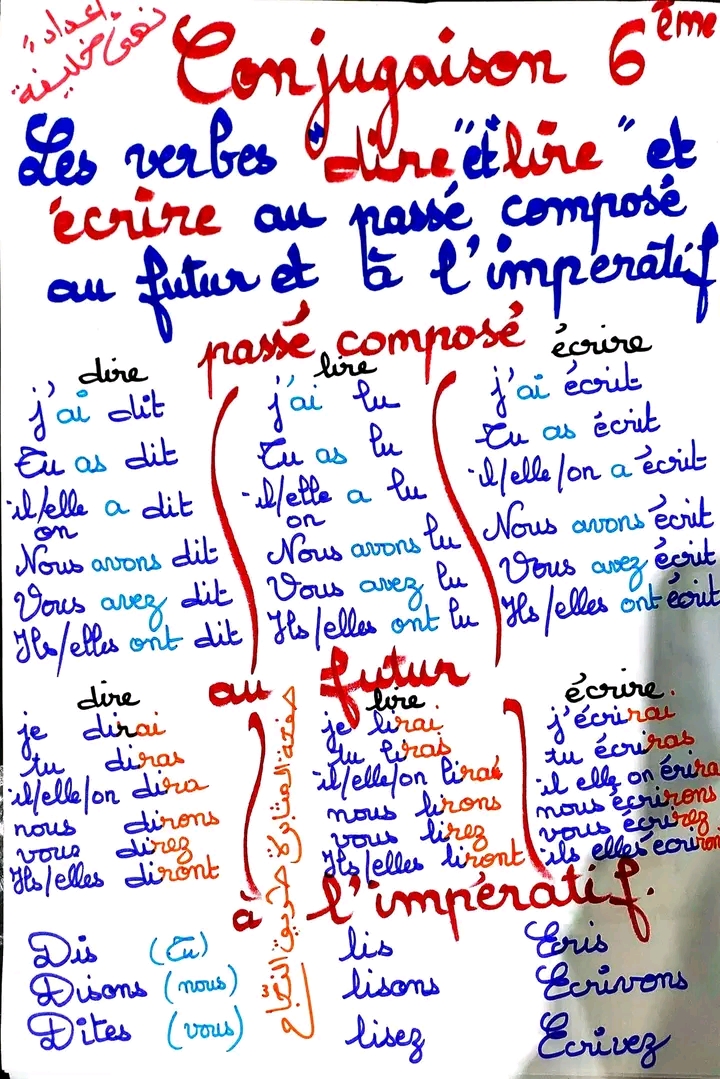 إعداد:
نهى خليفة
Conjugaison 6 ème
Les verbes "dire" et "lire" et
écrire au passé composé
au futur et à l'impératif
passé composé
dire
j'ai dit
Tu as dit
il/elle a dit
on
Nous avons dit
Vous avez dit
Ils/elles ont dit
lire
j'ai lu
Tu as lu
il/elle a lu
on
Nous avons lu
Vous avez lu
Ils/elles ont lu
écrire
j'ai écrit
Tu as écrit
il/elle/on a écrit
Nous avons écrit
Vous avez écrit
Ils/elles ont écrit
au futur
dire
je dirai
tu diras
il/elle/on dira
nous dirons
vous direz
Ils/elles diront
صفحة المثابرة طريق النجاح
lire
je lirai
tu liras
il/elle/on lira
nous lirons
vous lirez
Ils/elles liront
écrire.
j'écrirai
tu écriras
il elle on érira
nous écrirons
vous écrirez
ils elles écriron
à l'impératif.
Dis (Tu)
Disons (nous)
Dites (vous)
lis
lisons
lisez
Ecris
Ecrivons
Ecrivez